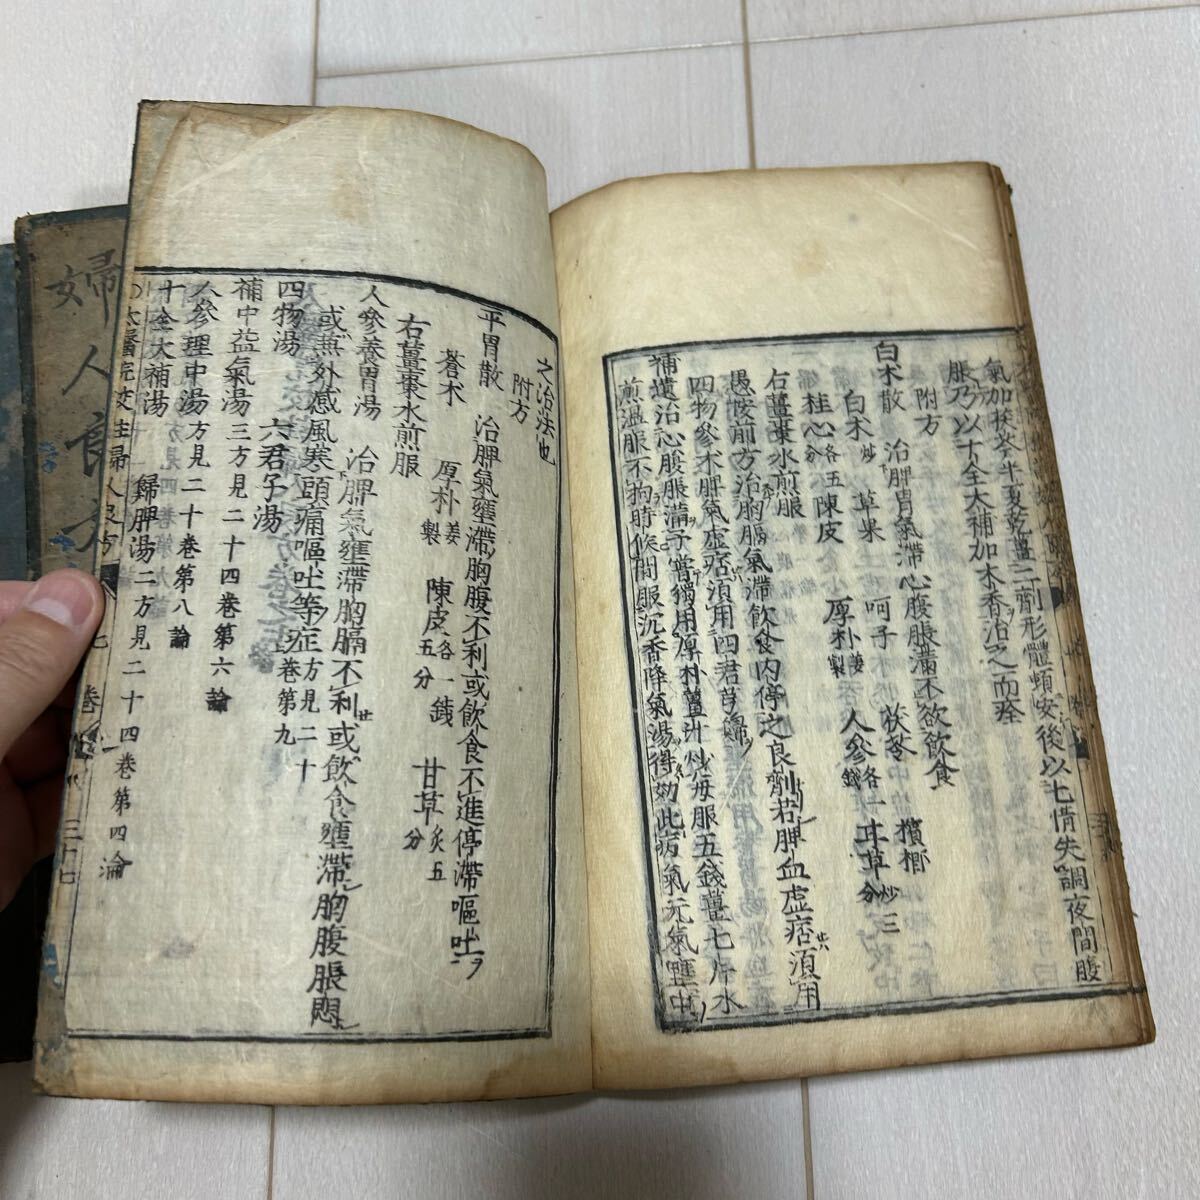 氣加茯苓半夏乾薑二劑形體頓安後以七情失調夜間腹
脹乃以十全大補加木香治之而痊
附方
白朮散　治脾胃氣滯心腹脹滿不欲飲食
白朮炒　草果　呵子　茯苓　檳榔炒三
桂心各五分　陳皮　厚朴姜製　人參各一錢　甘草分
右薑棗水煎服
愚按前方治胸膈氣滯飲食內停之良劑若脾血虛痞須用
四物參朮脾氣虛痞須用四君芎歸
補遺治心腹脹滿予嘗獨用厚朴薑汁炒每服五錢薑七片水
煎溫服不拘時候間服沉香降氣湯得効此病氣元氣壅中
之治法也
附方
平胃散　治脾氣壅滯胸腹不利或飲食不進停滯嘔吐
蒼朮　厚朴姜製　陳皮各一錢五分　甘草炙五分
右薑棗水煎服
人參養胃湯　治脾氣壅滯胸膈不利或飲食壅滯胸腹脹悶
或兼外感風寒頭痛嘔吐等症方見二十卷第九
四物湯　六君子湯
補中益氣湯三方見二十四卷第六論
人參理中湯方見二十卷第八論
十全大補湯　歸脾湯二方見二十四卷第四論
○太醫院校註婦人良方　七卷　三十七
婦人良方